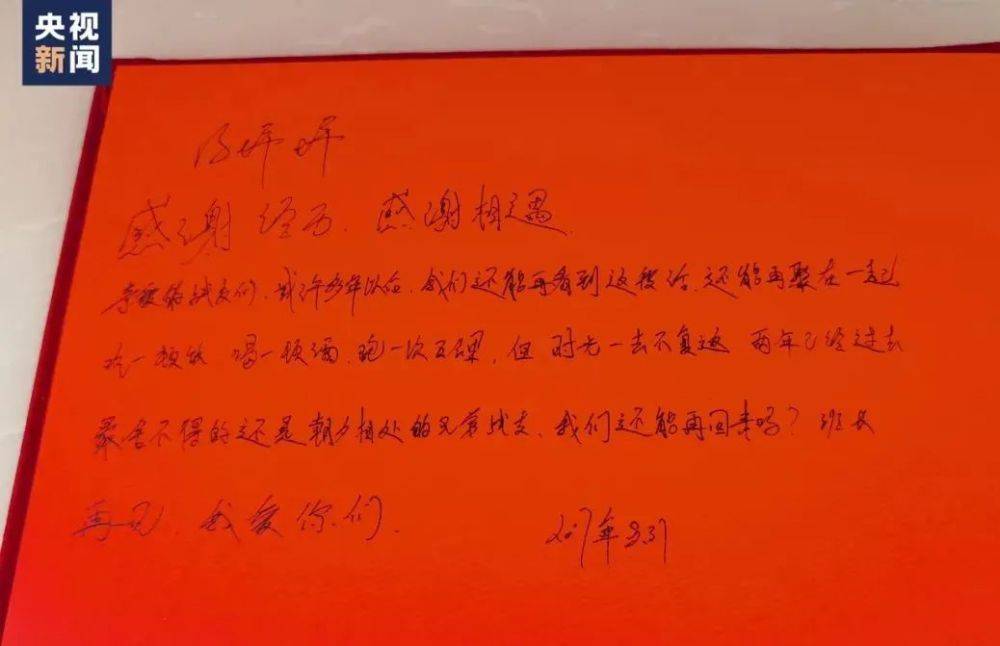 央视
新闻
冯婷婷
感谢经历、感谢相遇.
亲爱的战友们、或许多年以后、我们还能再看到这段话、还能再聚在一起
吃一顿饭 喝一顿酒、跑一次五公里、但时光一去不复返 两年已经过去
最舍不得的还是朝夕相处的兄弟战友、我们还能再回来吗？班长
再见、我爱你们.
年8.31